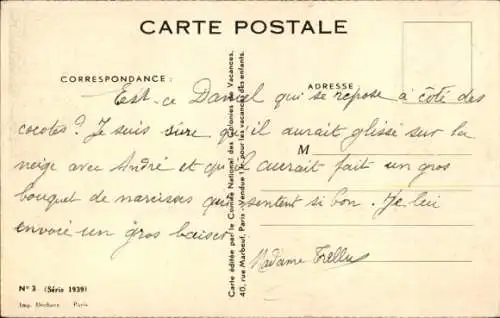 CARTE POSTALE
CORRESPONDANCE :
ADRESSE
Est-ce Daniel qui se repose à côté des
cocotes ? Je suis sûre qu'il aurait glissé sur la
M
neige avec André et qu'il aurait fait un gros
bouquet de narcisses qui sentent si bon. Je lui
envoie un gros baiser
Madame
Carte éditée par le Comité National des Colonies de Vacances.
40, rue Marbeuf, Paris - Vendue 1 fr. pour les vacances des enfants.
N° 3 (Série 1939)
Imp. Paris